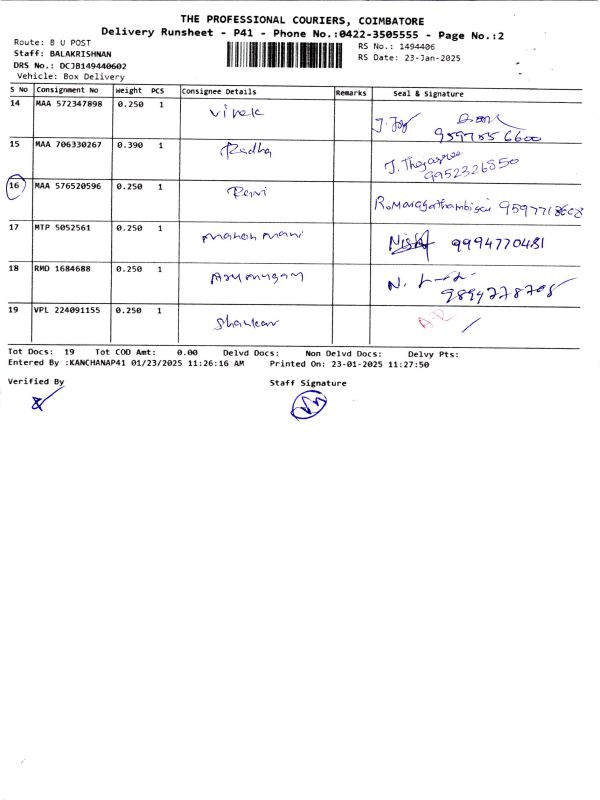 THE PROFESSIONAL COURIERS, COIMBATORE
Delivery Runsheet - P41 - Phone No.:0422-3505555 - Page No.:2
Route: B U POST
RS No.: 1494406
Staff: BALAKRISHNAN
RS Date: 23-Jan-2025
DRS No.: DCJB149440602
Vehicle: Box Delivery
S No Consignment No Weight PCS Consignee Details Remarks Seal & Signature
14 MAA 572347898 0.250 1 Vivek J. Joy
9597856600
15 MAA 706330267 0.390 1 Radha
9952326850
16 MAA 576520596 0.250 1 Revi 9597718608
17 MTP 5052561 0.250 1 manon mani 9994770481
18 RMD 1684688 0.250 1 Arumugam N.
9894778708
19 VPL 224091155 0.250 1 Shankar
Tot Docs: 19 Tot COD Amt: 0.00 Delvd Docs: Non Delvd Docs: Delvy Pts:
Entered By :KANCHANAP41 01/23/2025 11:26:16 AM Printed On: 23-01-2025 11:27:50
Verified By Staff Signature